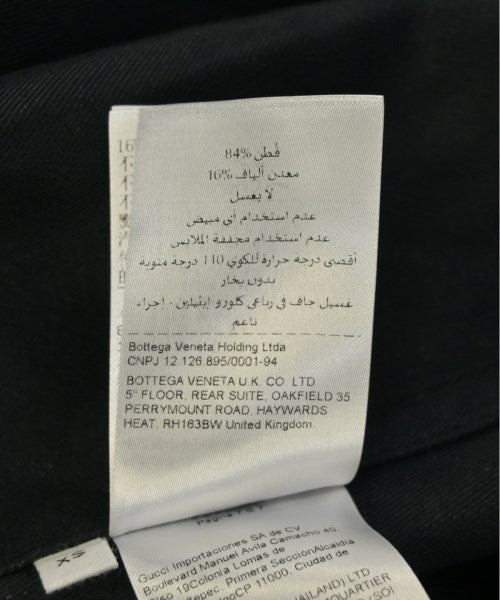 قُطن 84%
معدن ألياف 16%
لا يغسل
عدم استخدام أي مبيض
عدم استخدام مجففة الملابس
أقصى درجة حرارة للكوي 110 درجة مئوية
بدون بخار
غسيل جاف في رباعي كلورو إيثيلين - إجراء
ناعم
Bottega Veneta Holding Ltda
CNPJ 12.126.895/0001-94
BOTTEGA VENETA U.K. CO. LTD
5° FLOOR, REAR SUITE, OAKFIELD 35
PERRYMOUNT ROAD, HAYWARDS
HEAT, RH163BW United Kingdom
Gucci Importaciones SA de CV
Boulevard Manuel Avila Camacho 40,
Piso 19Colonia Lomas de
Chapultepec, Primera SecciónAlcaldía
CP 11000, Ciudad de
(THAILAND) LTD
QUARTIER
XS